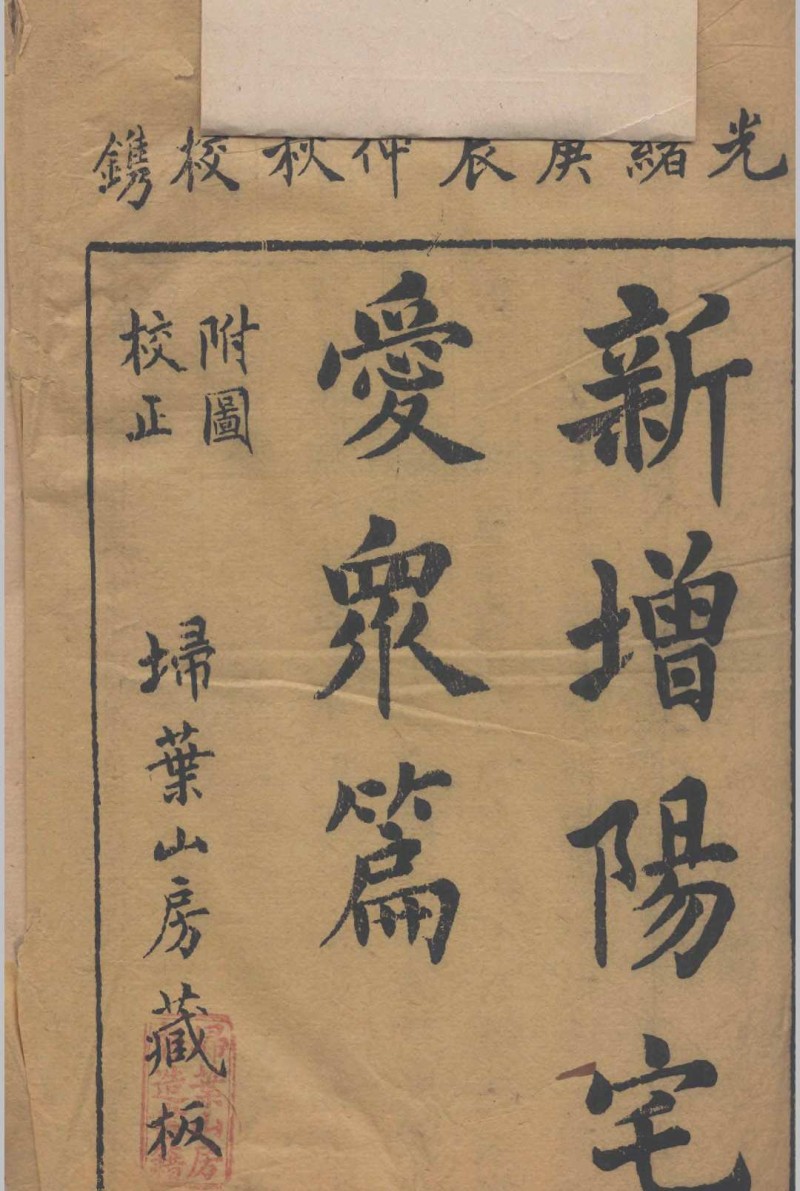 光緒庚辰仲秋校鐫
新增陽宅
愛眾篇
附圖
校正
埽葉山房藏板